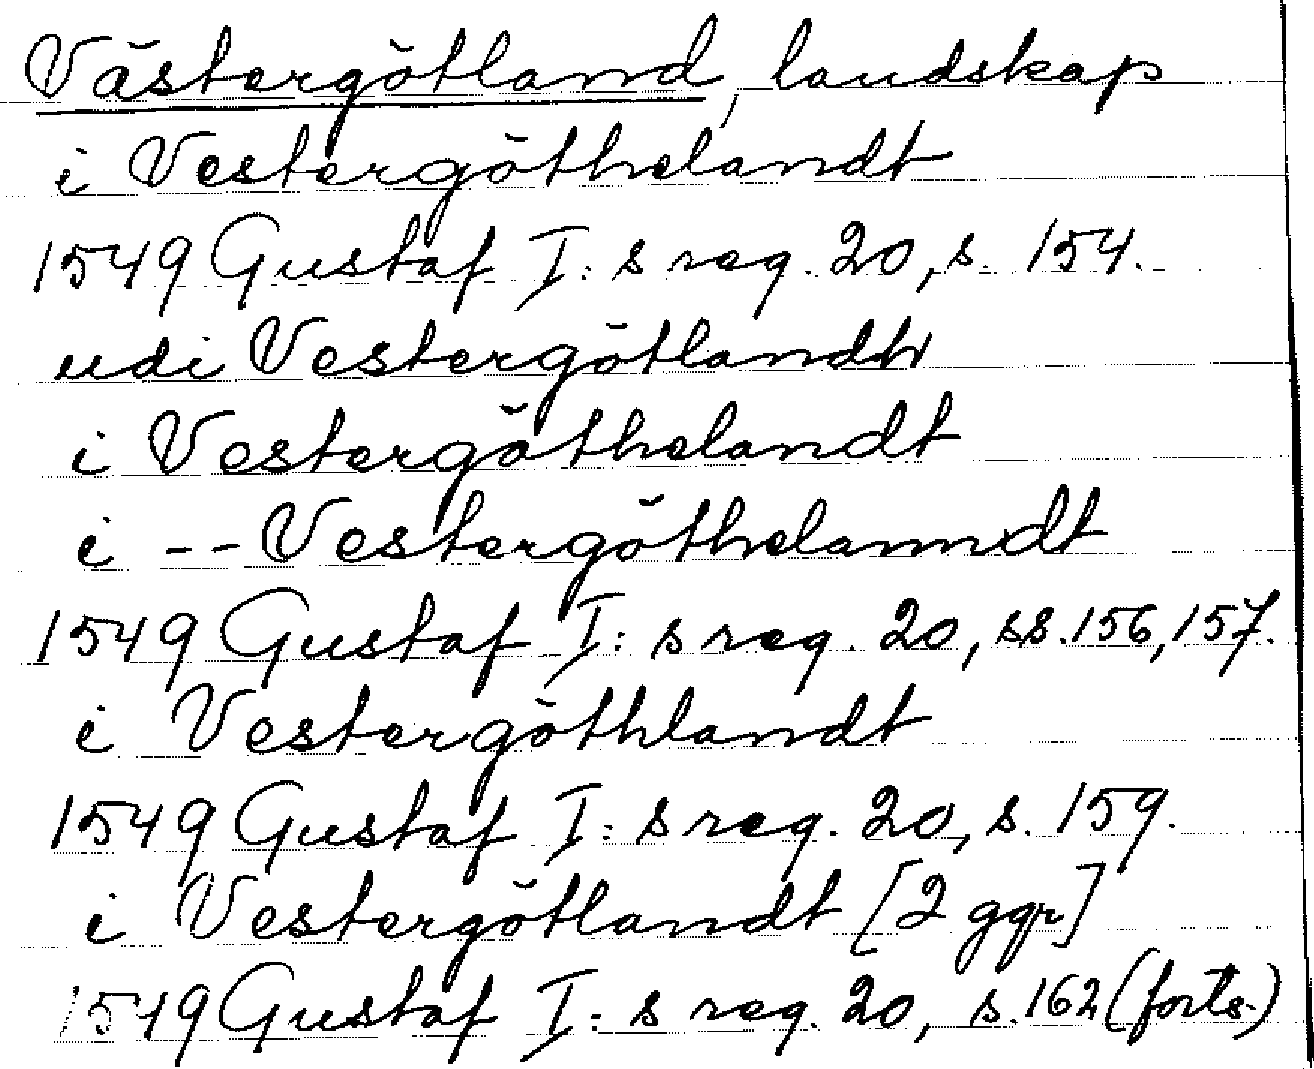 Västergötland, landskap
i Vestergöthelandt
1549 Gustaf I: s reg. 20, s. 154.
udi Vestergötlandh
i Vestergöthelandt
i -- Vestergöthelanndt
1549 Gustaf I: s reg. 20, ss. 156, 157.
i Vestergöthlandt
1549 Gustaf I: s reg. 20, s. 159.
i Vestergötlandt [2 ggr]
1549 Gustaf I: s reg. 20, s. 162 (forts.)